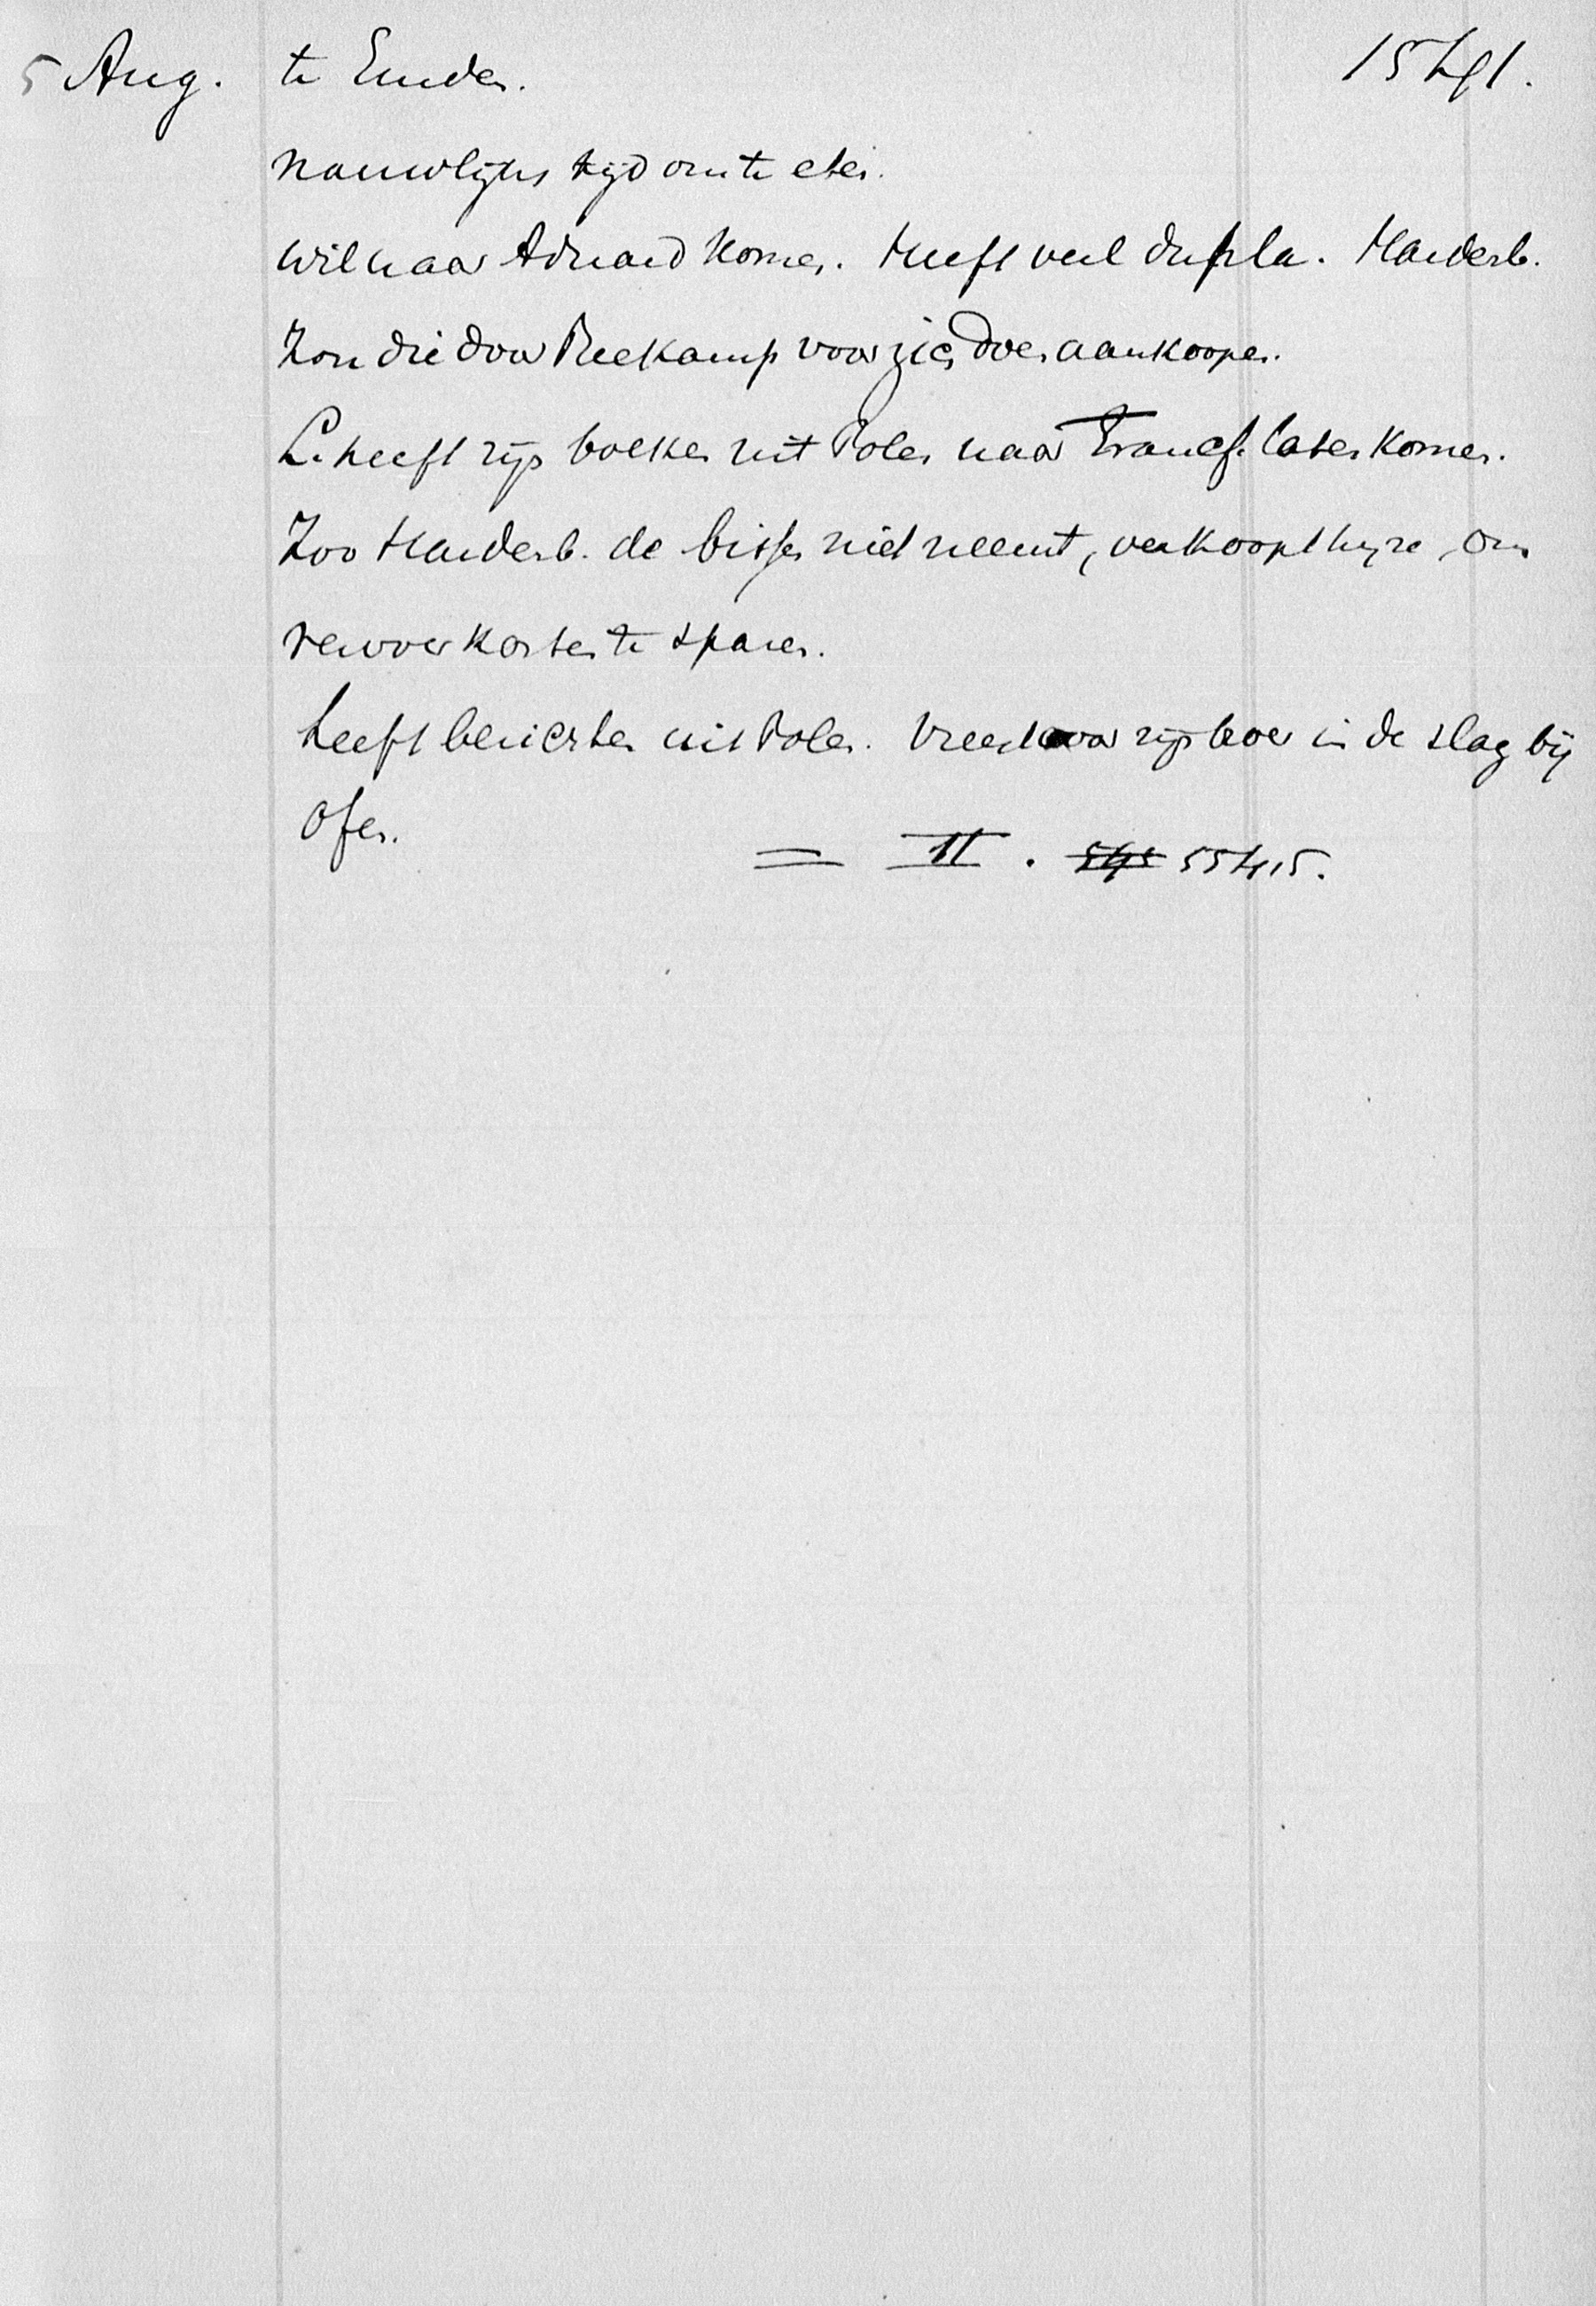 5 Aug. te Emden. 1541.
Nauwlijks tijd om te eten.
Wil naar Aduard komen. Heeft veel dupla. Harderb.
Kon die door Reekamp voor zich doen aankoopen.
L. heeft zijn boeken uit Polen naar Francf. laten komen.
Zoo Harderb. de bisse niet neemt, verkoopt hij ze, om
vervoerkosten te sparen.
heeft berichten uit Polen. Vreest voor zijn broer in de slag bij
Ofen.
= II. 545 55415.